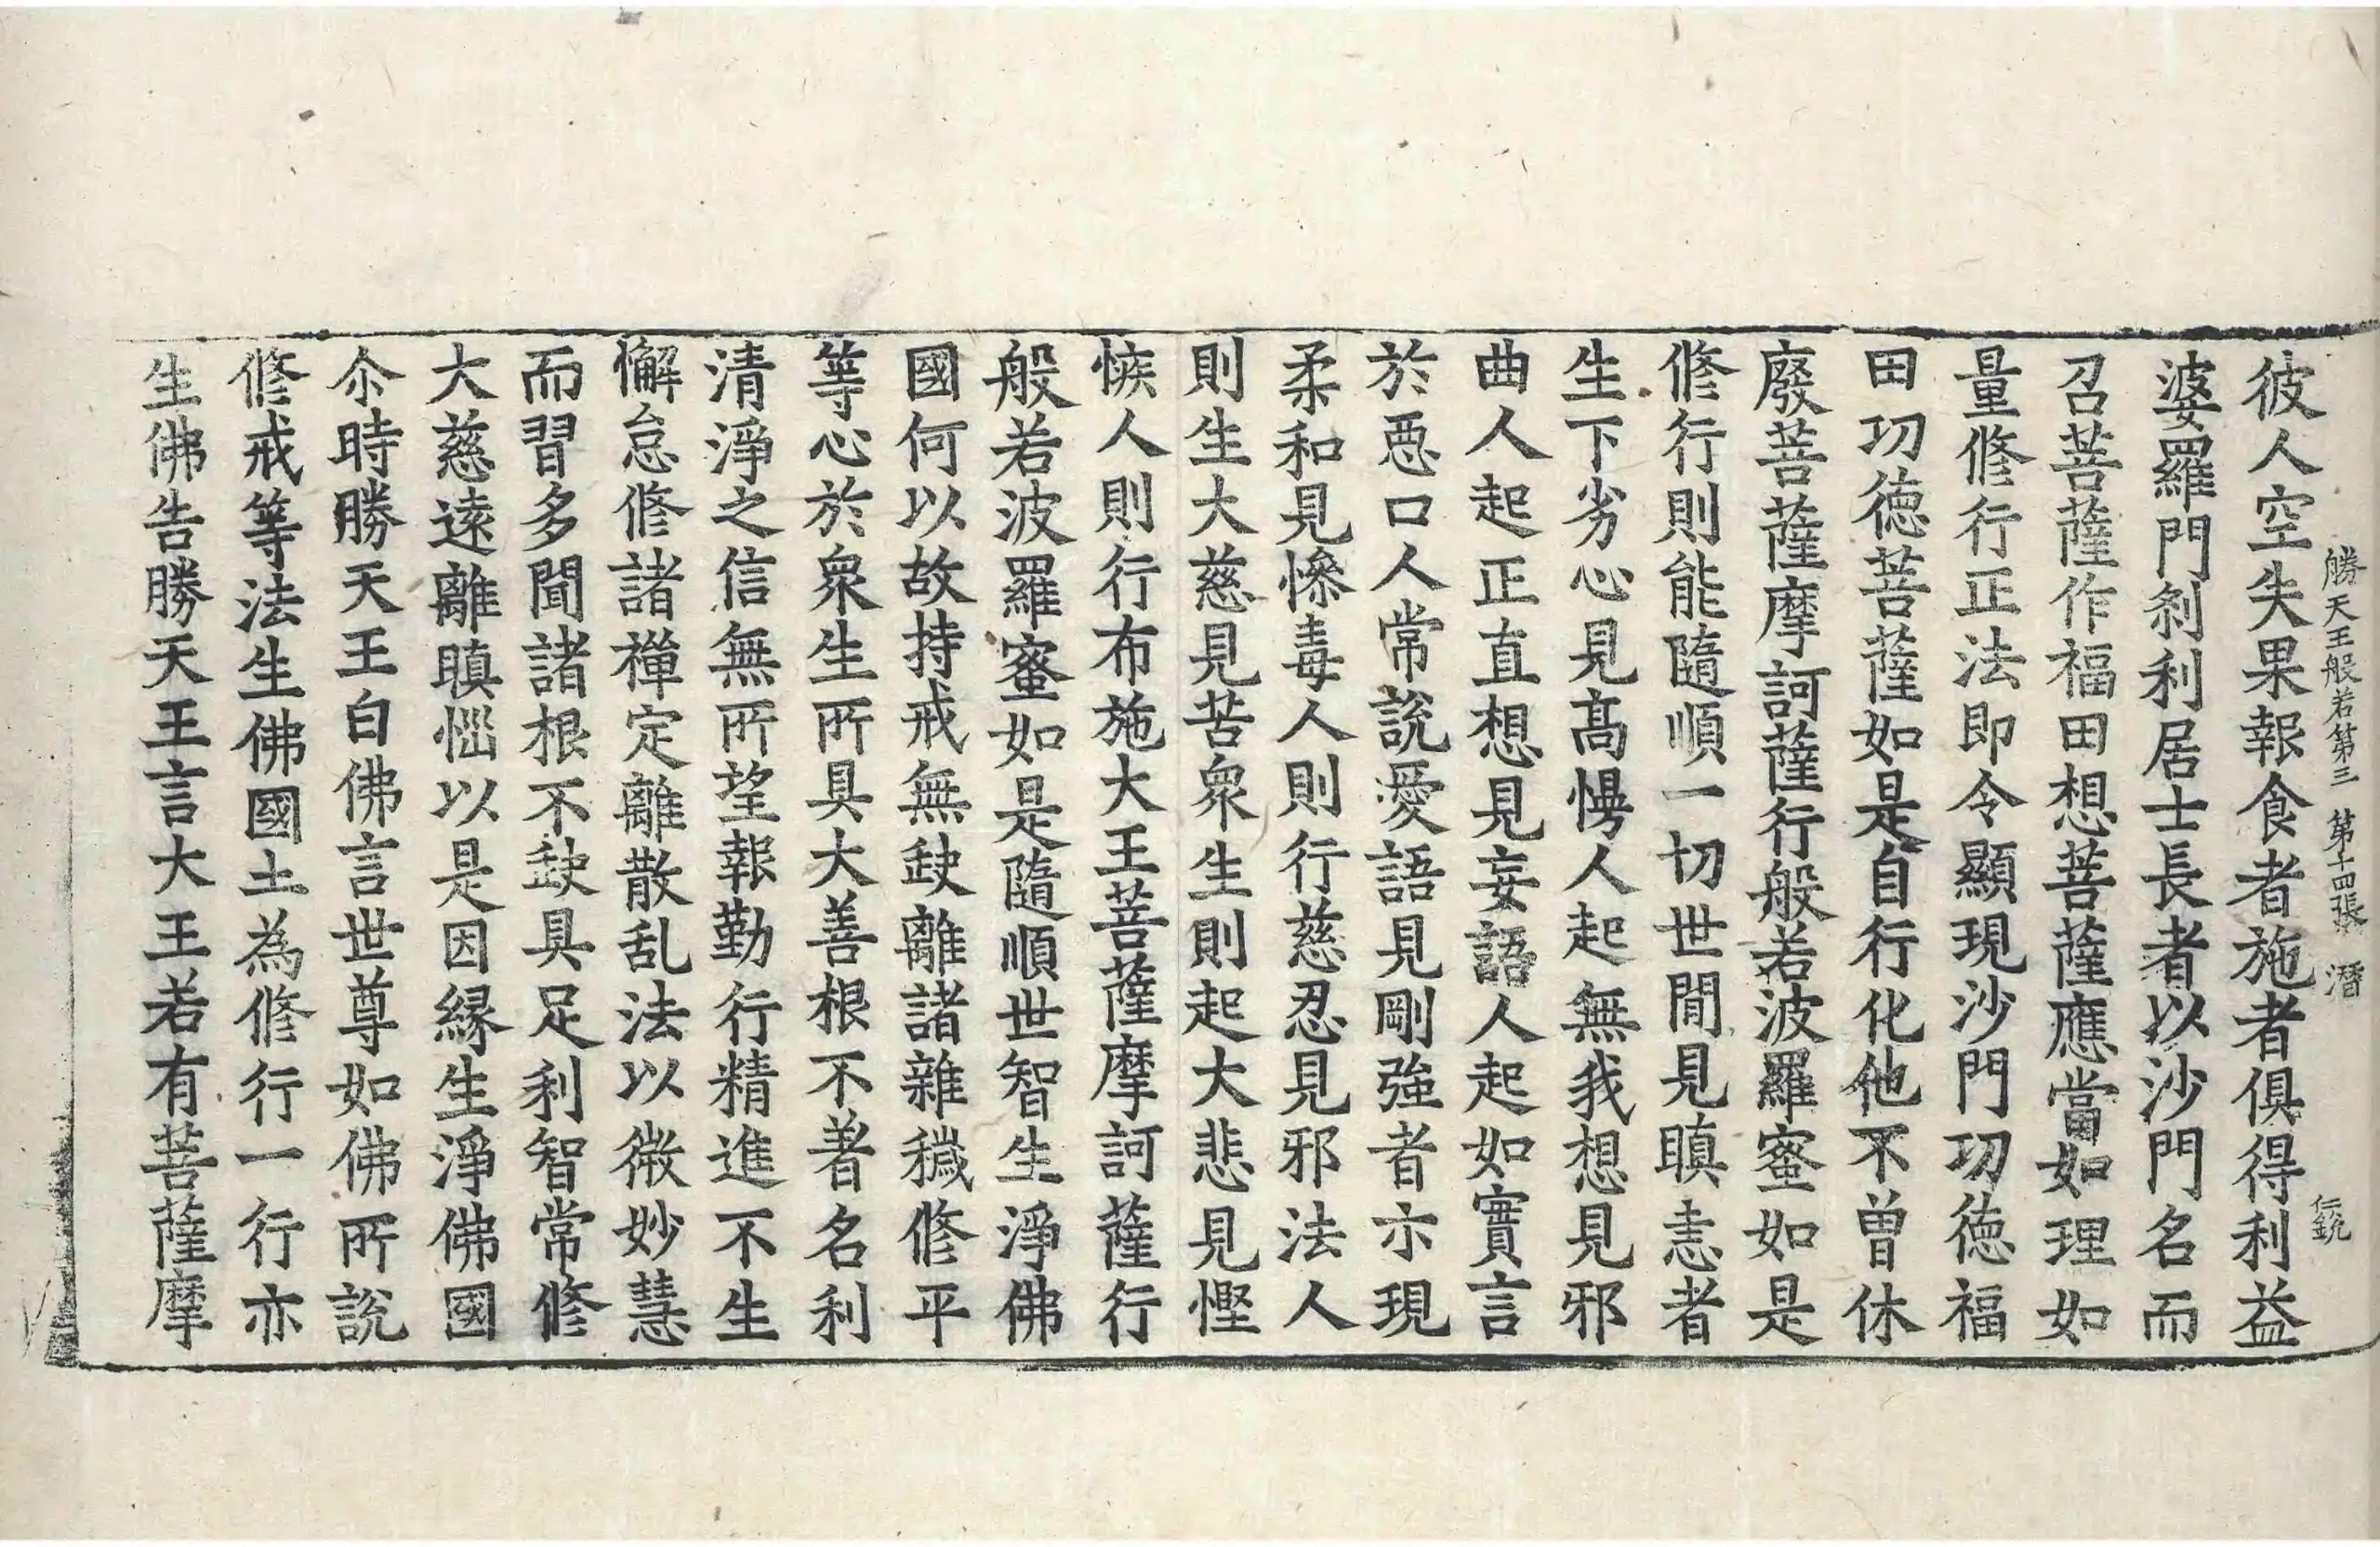 勝天王般若第三 第十四張 潛
彼人空失果報食者施者俱得利益
婆羅門刹利居士長者以沙門名而
召菩薩作福田想菩薩應當如理如
量修行正法即令顯現沙門功德福
田功德菩薩如是自行化他不曾休
廢菩薩摩訶薩行般若波羅蜜如是
修行則能隨順一切世間見瞋恚者
生下劣心見髙慢人起無我想見邪
曲人起正直想見妄語人起如實言
於惡口人常說愛語見剛強者亦現
柔和見慘毒人則行慈忍見邪法人
則生大慈見苦衆生則起大悲見慳
嫉人則行布施大王菩薩摩訶薩行
般若波羅蜜如是隨順世智生淨佛
國何以故持戒無缺離諸雜穢修平
等心於衆生所具大善根不著名利
清淨之信無所望報勤行精進不生
懈怠修諸禪定離散乱法以微妙慧
而習多聞諸根不缺具足利智常修
大慈遠離瞋惱以是因緣生淨佛國
尒時勝天王白佛言世尊如佛所說
修戒等法生佛國土為修行一行亦
生佛告勝天王言大王若有菩薩摩